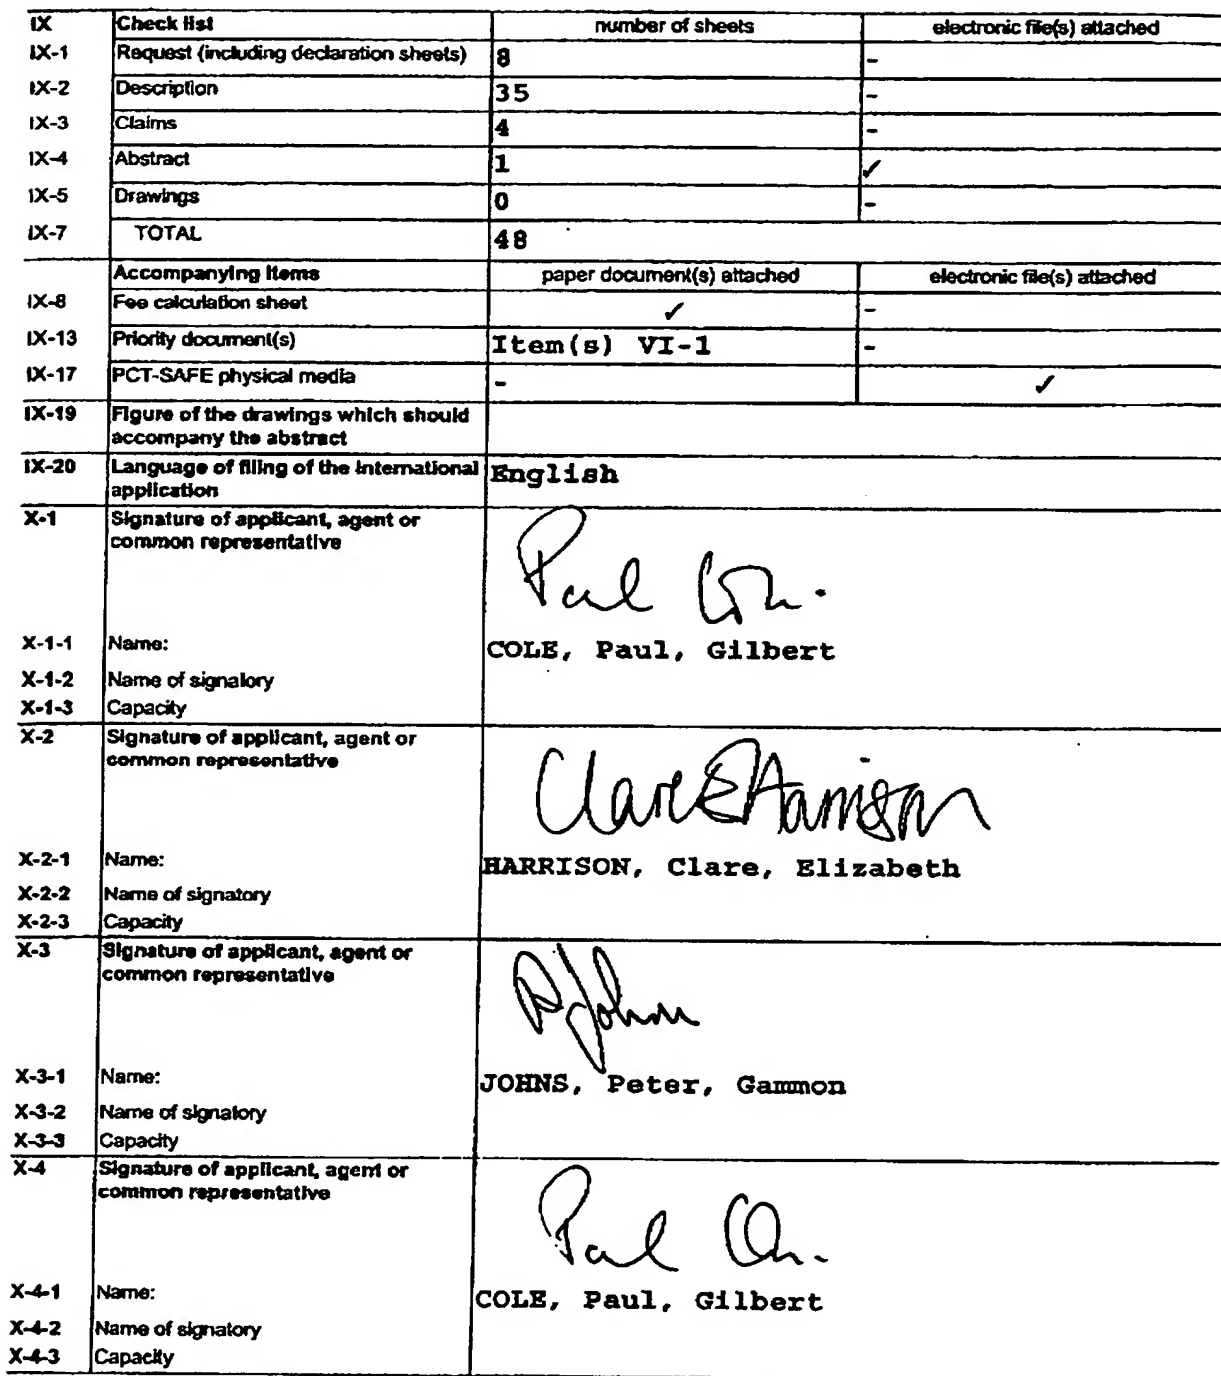 IX Check list number of sheets electronic file(s) attached
IX-1 Request (including declaration sheets) 8 -
IX-2 Description 35 -
IX-3 Claims 4 -
IX-4 Abstract 1 ✓
IX-5 Drawings 0 -
IX-7 TOTAL 48
Accompanying Items paper document(s) attached electronic file(s) attached
IX-8 Fee calculation sheet ✓ -
IX-13 Priority document(s) Item(s) VI-1 -
IX-17 PCT-SAFE physical media - ✓
IX-19 Figure of the drawings which should
accompany the abstract
IX-20 Language of filing of the international English
application
X-1 Signature of applicant, agent or
common representative
Paul
X-1-1 Name: COLE, Paul, Gilbert
X-1-2 Name of signatory
X-1-3 Capacity
X-2 Signature of applicant, agent or
common representative
Clare E Harrison
X-2-1 Name: HARRISON, Clare, Elizabeth
X-2-2 Name of signatory
X-2-3 Capacity
X-3 Signature of applicant, agent or
common representative
X-3-1 Name: JOHNS, Peter, Gammon
X-3-2 Name of signatory
X-3-3 Capacity
X-4 Signature of applicant, agent or
common representative
Paul
X-4-1 Name: COLE, Paul, Gilbert
X-4-2 Name of signatory
X-4-3 Capacity